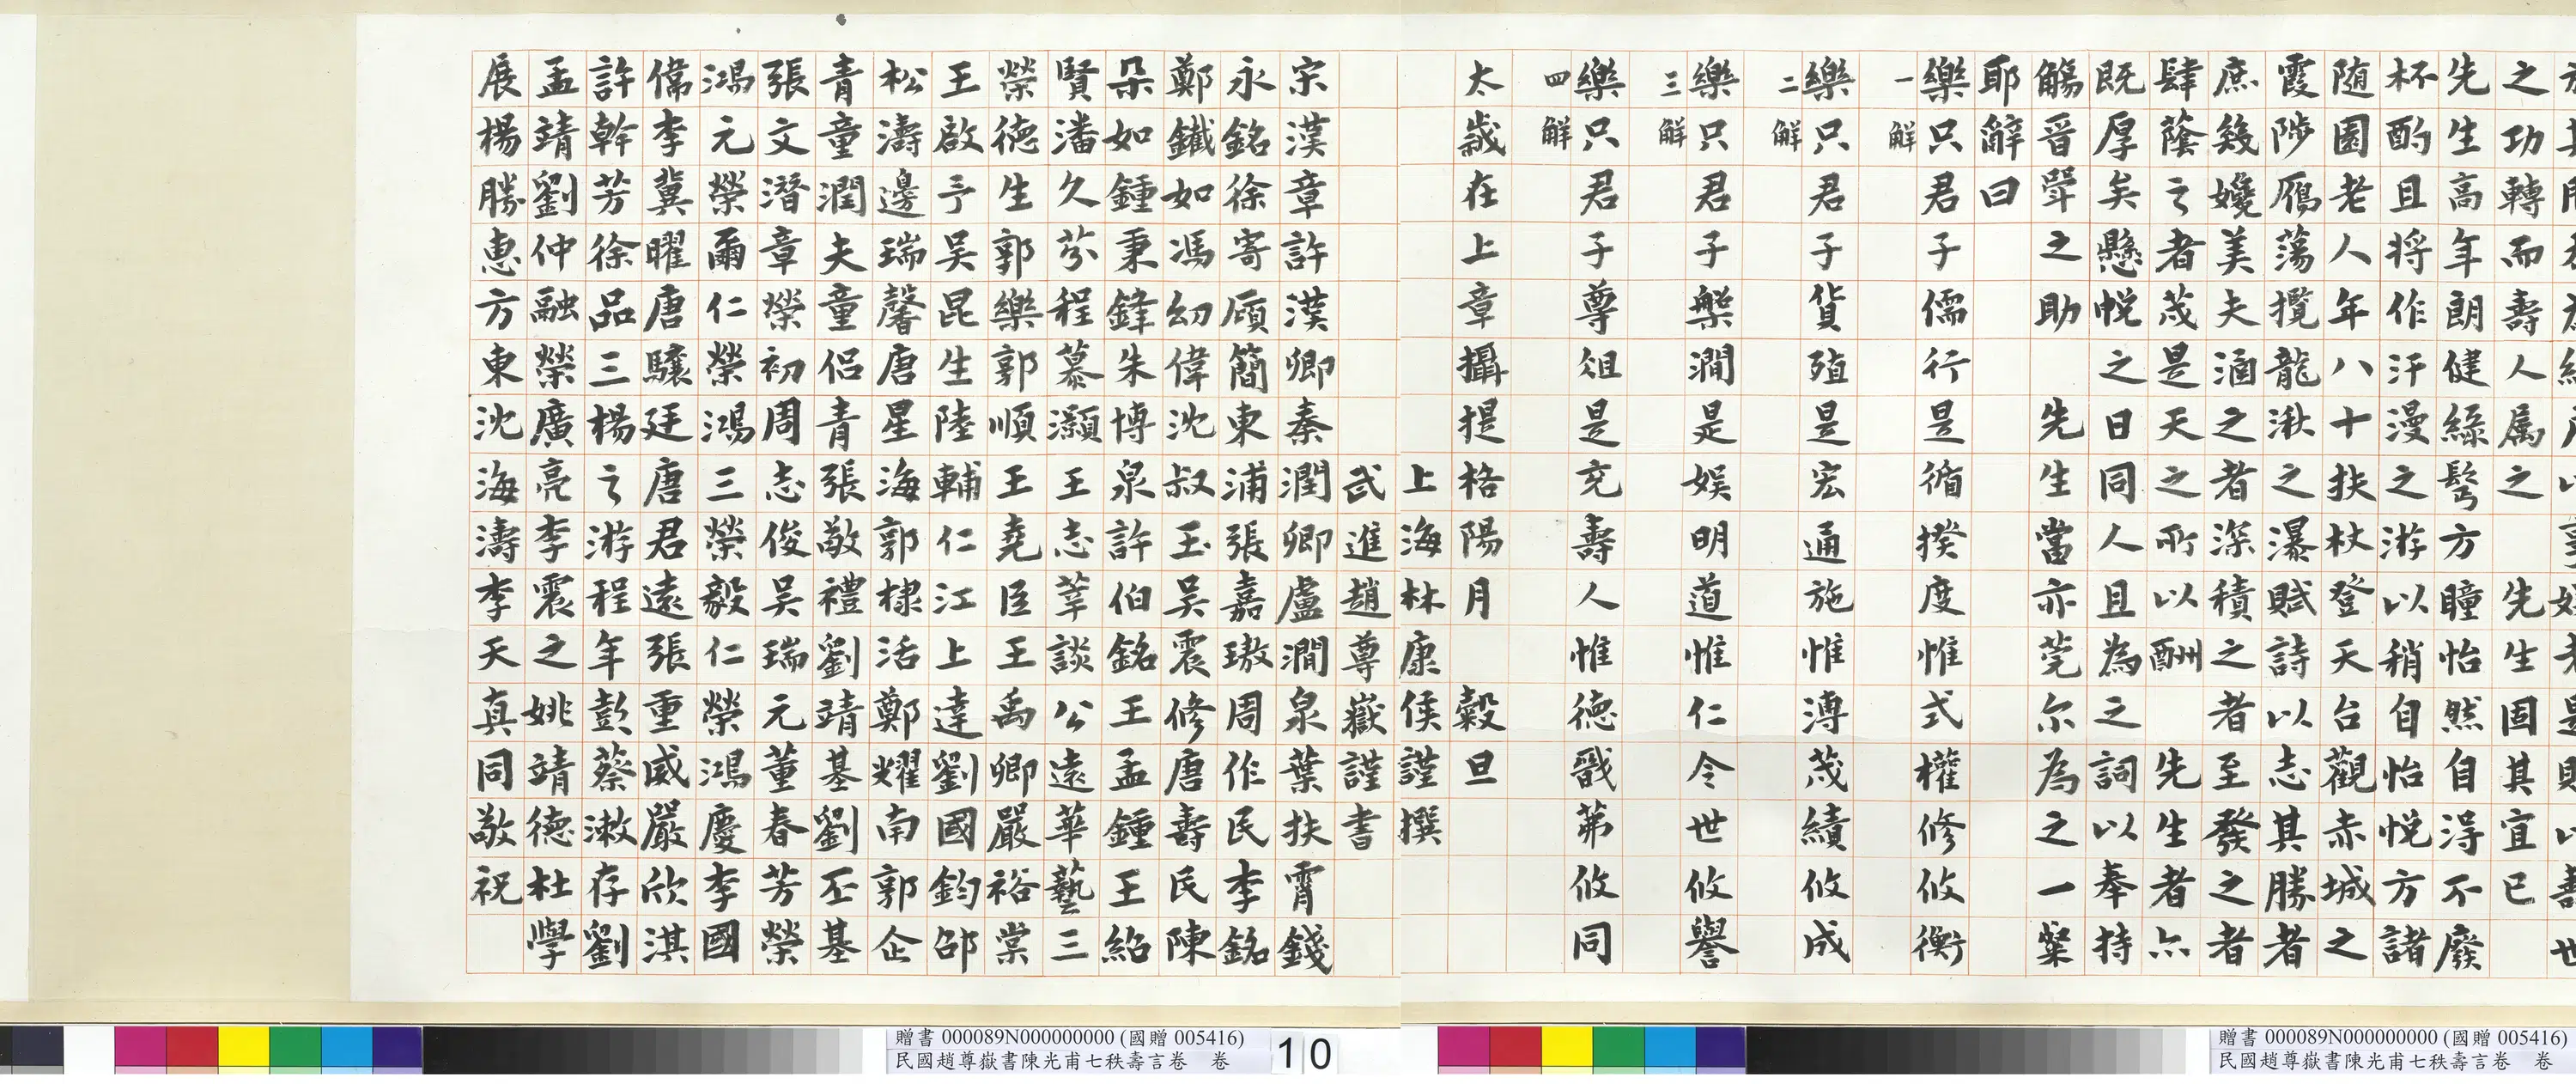 之功轉而壽人属之　先生固其宜已
先生高年朗健絲髩方瞳怡然自得不廢
杯酌且将作汗漫之游以稍自怡悦方諸
随園老人年八十扶杖登天台觀赤城之
霞陟鴈蕩攬龍湫之瀑賦詩以志其勝者
庶幾孅美夫涵之者深積之者至發之者
肆蔭之者茂是天之所以酬　先生者亦
既厚矣懸帨之日同人且為之詞以奉持
觴晋斝之助　先生當亦莞尔為之一粲
耶辭曰
樂只君子儒行是循揆度惟式權修攸衡
一解
樂只君子貨殖是宏通施惟溥茂績攸成
二解
樂只君子槃澗是娛明道惟仁令世攸譽
三解
樂只君子尊俎是充壽人惟德戩茀攸同
四解
太歲在上章攝提格陽月　穀旦
上海林康侯謹撰
武進趙尊嶽謹書
宋漢章許漢卿秦潤卿盧澗泉葉扶霄錢
永銘徐寄廎簡東浦張嘉璈周作民李銘
鄭鐵如馮幼偉沈叔玉吳震修唐壽民陳
朵如鍾秉鋒朱博泉許伯銘王孟鍾王紹
賢潘久芬程慕灝王志莘談公遠華藝三
榮德生郭樂郭順王堯臣王禹卿嚴裕棠
王啟予吳昆生陸輔仁江上達劉國鈞邵
松濤邊瑞馨唐星海郭棣活鄭耀南郭企
青童潤夫童侣青張敬禮劉靖基劉丕基
張文潛章榮初周志俊吳瑞元董春芳榮
鴻元榮爾仁榮鴻三榮毅仁榮鴻慶李國
偉李冀曜唐驤廷唐君遠張重威嚴欣淇
許幹芳徐品三楊之游程年彭蔡漱存劉
孟靖劉仲融榮廣亮李震之姚靖德杜學
展楊勝惠方東沈海濤李天真同敬祝
贈書 000089N000000000 (國贈 005416)
民國趙尊嶽書陳光甫七秩壽言卷　卷
10
贈書 000089N000000000 (國贈 005416)
民國趙尊嶽書陳光甫七秩壽言卷　卷